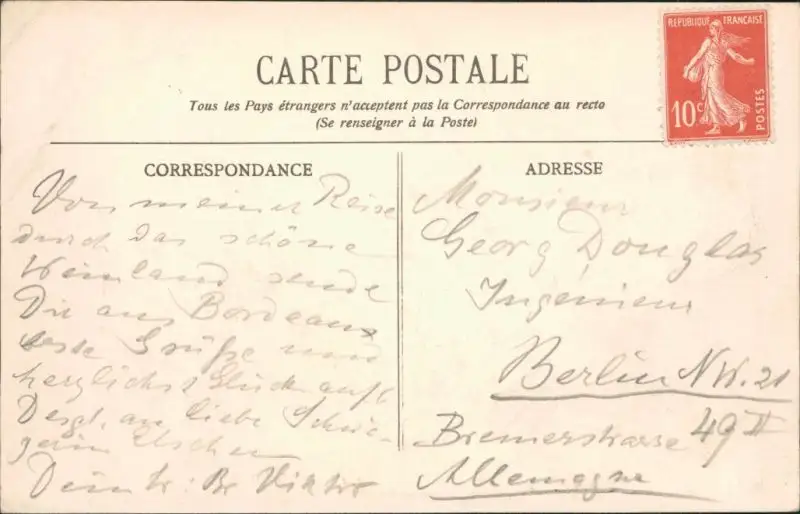 RÉPUBLIQUE FRANÇAISE
10c POSTES
CARTE POSTALE
Tous les Pays étrangers n'acceptent pas la Correspondance au recto
(Se renseigner à la Poste)
CORRESPONDANCE
Von meiner Reise
durch das schöne
Weinland sende
Dir aus Bordeaux
beste Grüße und
herzliches Glückauf!
Desgl. an liebe Schwä-
gerin Elschen
Dein tr. Br. Viktor
ADRESSE
Monsieur
Georg Douglas
Ingénieur
Berlin NW. 21
Bremerstrasse 49 II
Allemagne